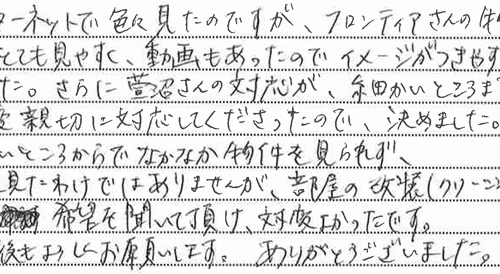 ターネットで色々見たのですが、フロンティアさんの物
とても見やすく、動画もあったのでイメージがつきやす
た。さらに菅沼さんの対応が、細かいところま
親切に対応してくださったので、決めました。
いところからでなかなか物件を見られず、
見たわけではありませんが、部屋の改装(クリーニ
希望を聞いて頂け、大変よかったです。
後もよろしくお願いします。ありがとうございました。